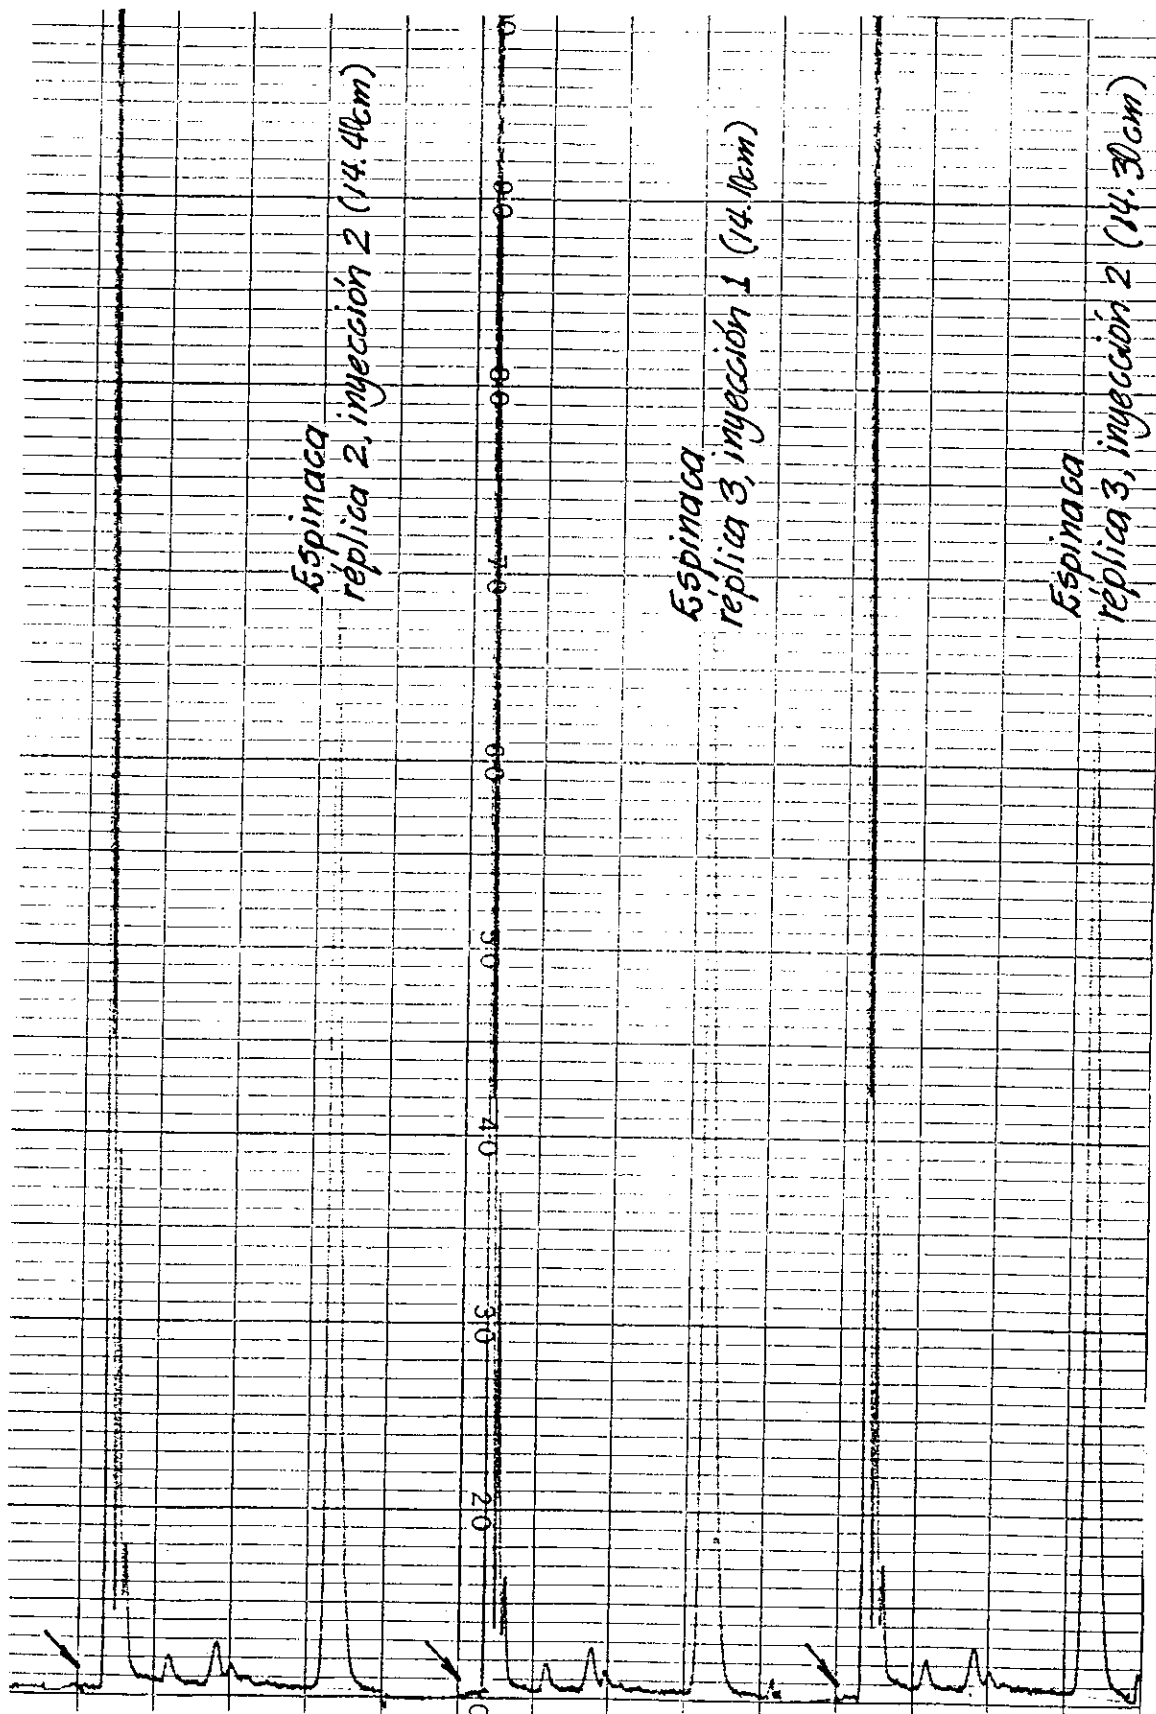 Espinaca
réplica 2, inyección 2 (14.40cm)
Espinaca
réplica 3, inyección 1 (14.10cm)
Espinaca
réplica 3, inyección 2 (14.30cm)
90
80
70
60
50
40
30
20